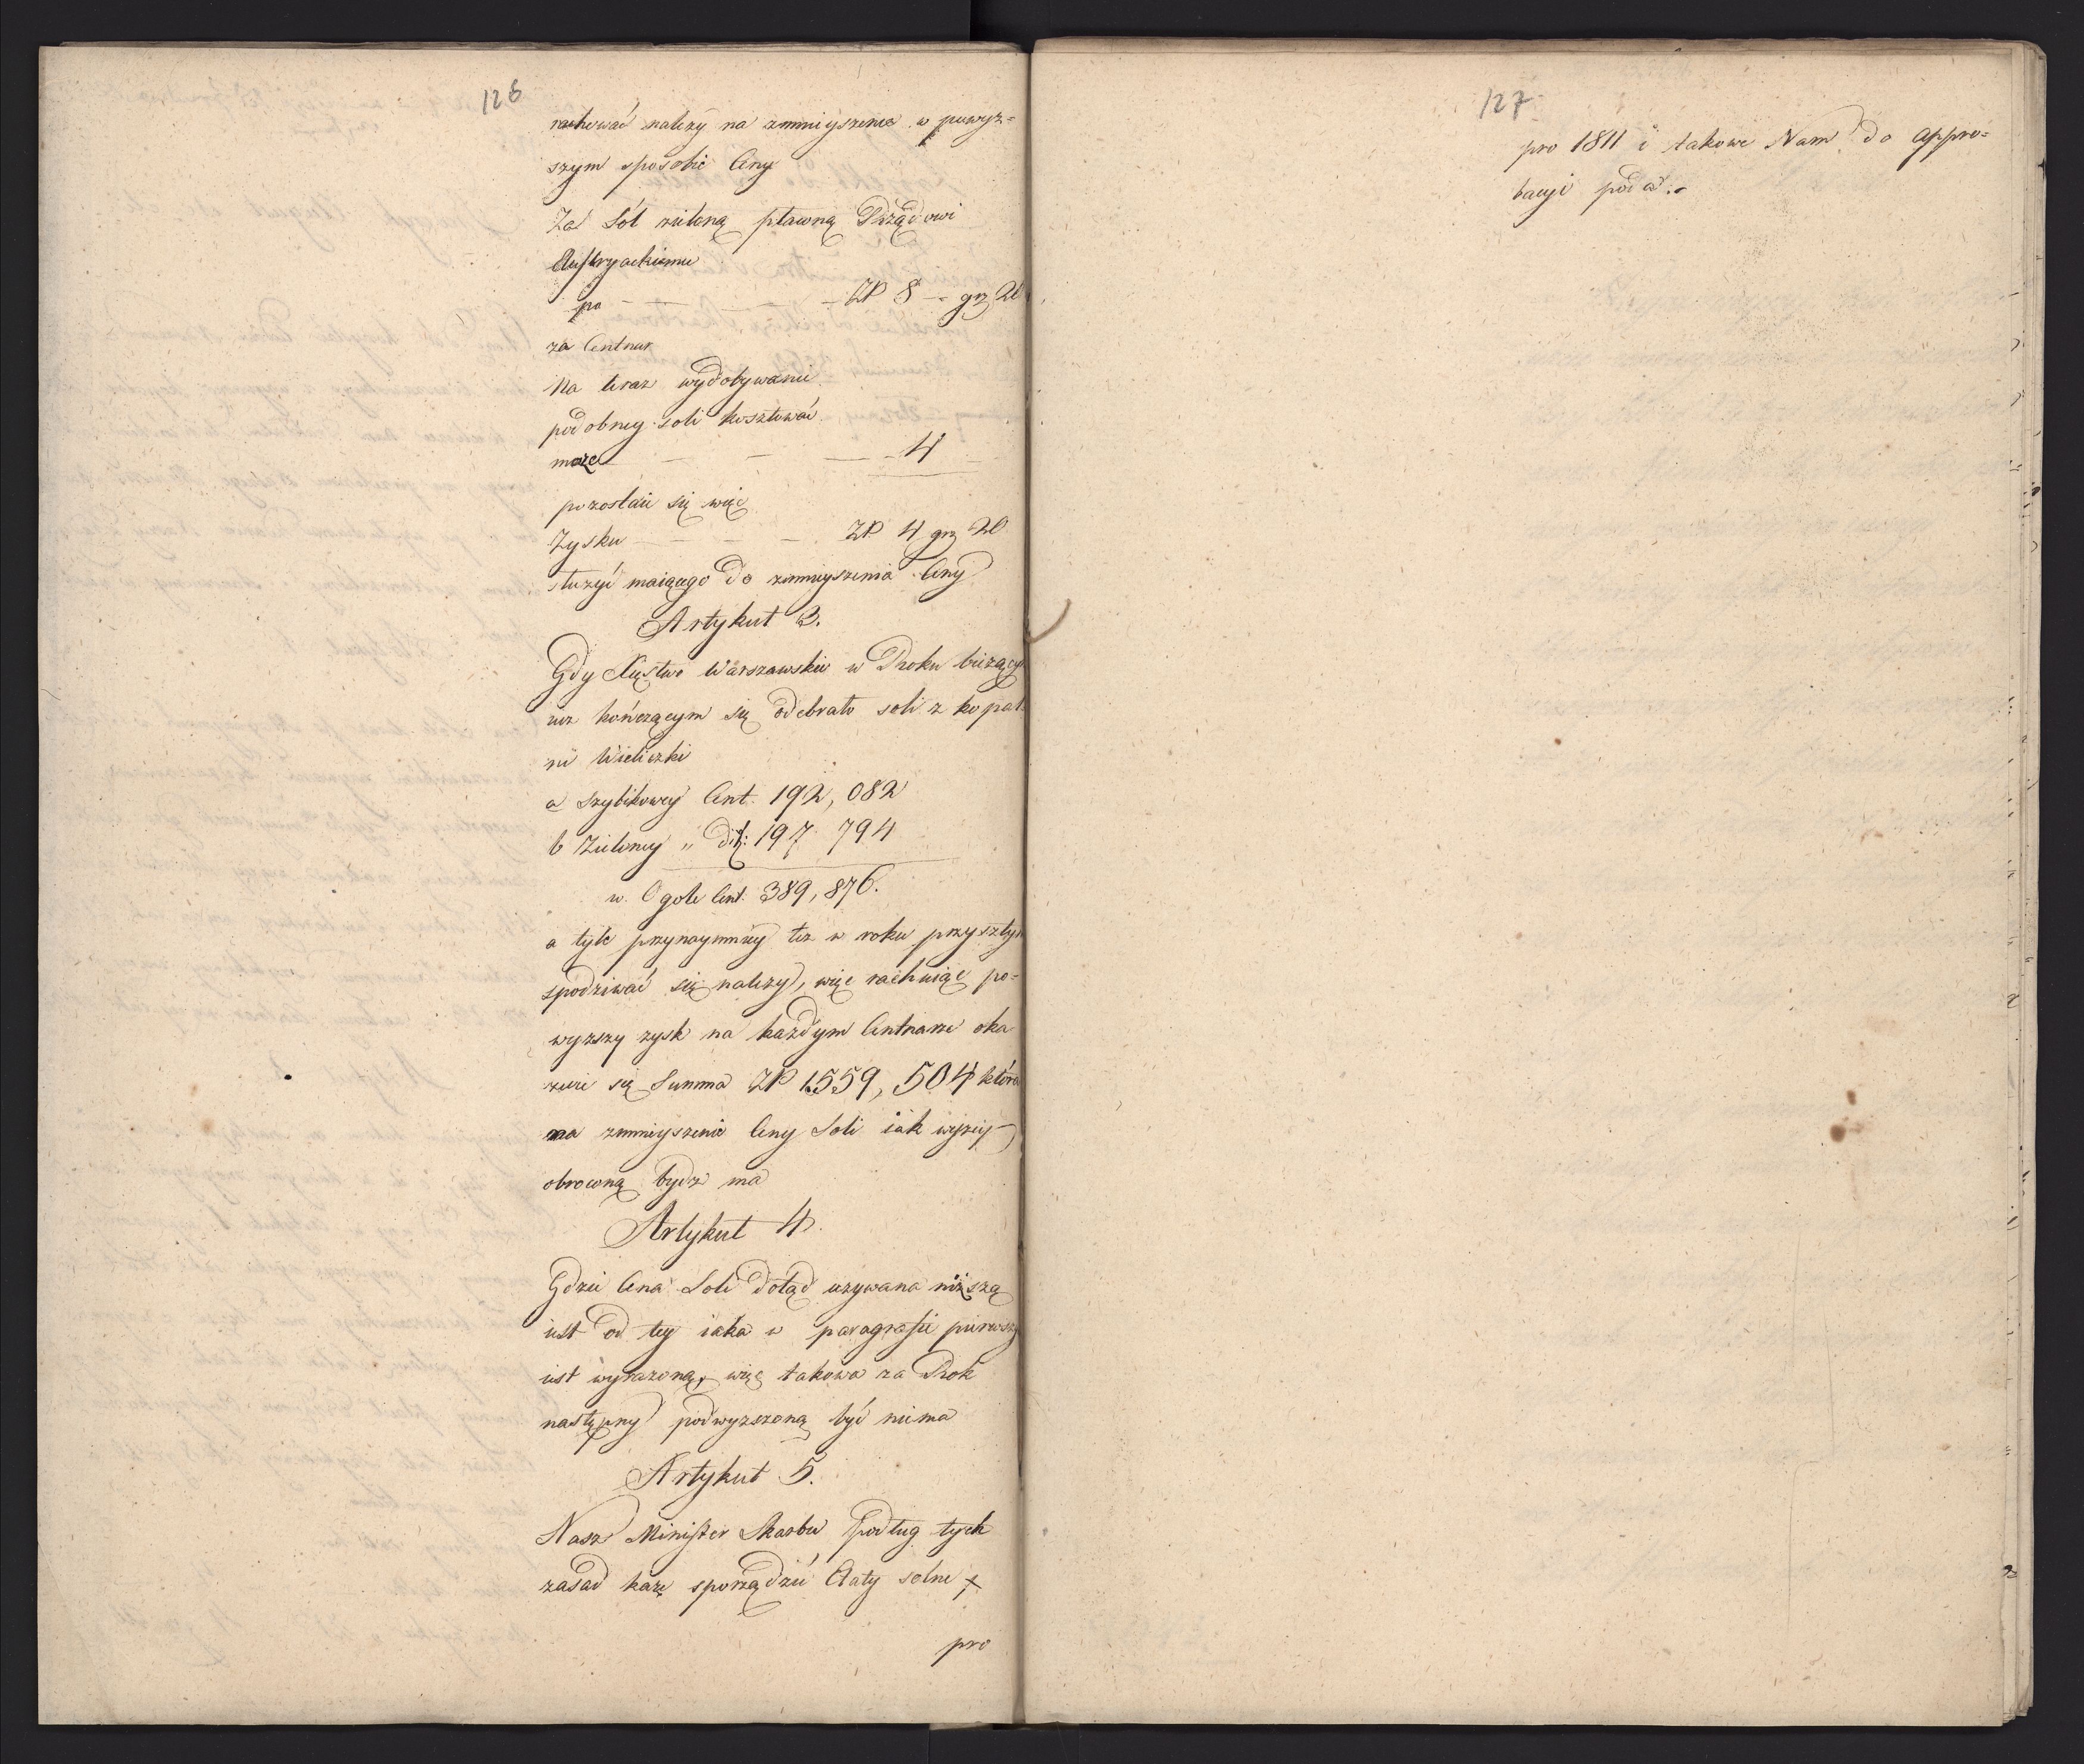 126
rachować należy na zmnieyszenie w powyz=
szym sposobie Ceny
Za Sól zieloną pławną Rządowi
Austryackiemu
po — — — ZP 8 — grz 2l
za Centnar
Na teraz wydobywanie
podobney soli kosztować
może — — — 4
pozostaie się więc
Zysku — — — ZP 4 grz 2l
służyć maiącego do zmnieyszenia Ceny
Artykuł 3.
Gdy Xięstwo Warszawskie w Roku bieżącym
iuz kończącym się odebrało soli z kopal
ni Wieliczki
a Szybikowey Cent. 192,082
b Zieloney " dit: 197 794
w Ogole Cent. 389,876.
a tyle przynaymniey też w roku przyszłym
spodziwać się należy, więc rachuiąc po=
wyzszy zysk na każdym Centnarze oka
zuie się Summa ZP 1559,504 która
na zmnieyszenie Ceny Soli iak wyżey
obroconą bydz ma
Artykuł 4.
Gdzie Cena Soli dotąd używana niższą
iest od tey iaka w paragrafie pierwszym
iest wyrażoną, więc takowa za Rok
następny podwyższoną być niema
Artykuł 5.
Nasz Minister Skarbu podług tych
zasad każe sporządzić Etaty solne
pro
127
pro 1811 i takowe Nam do appro=
bacyi poda.